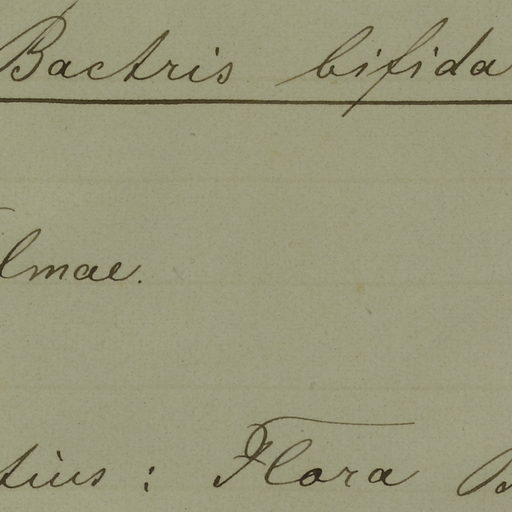 Bactris bifida
lmae.
tius: Flora